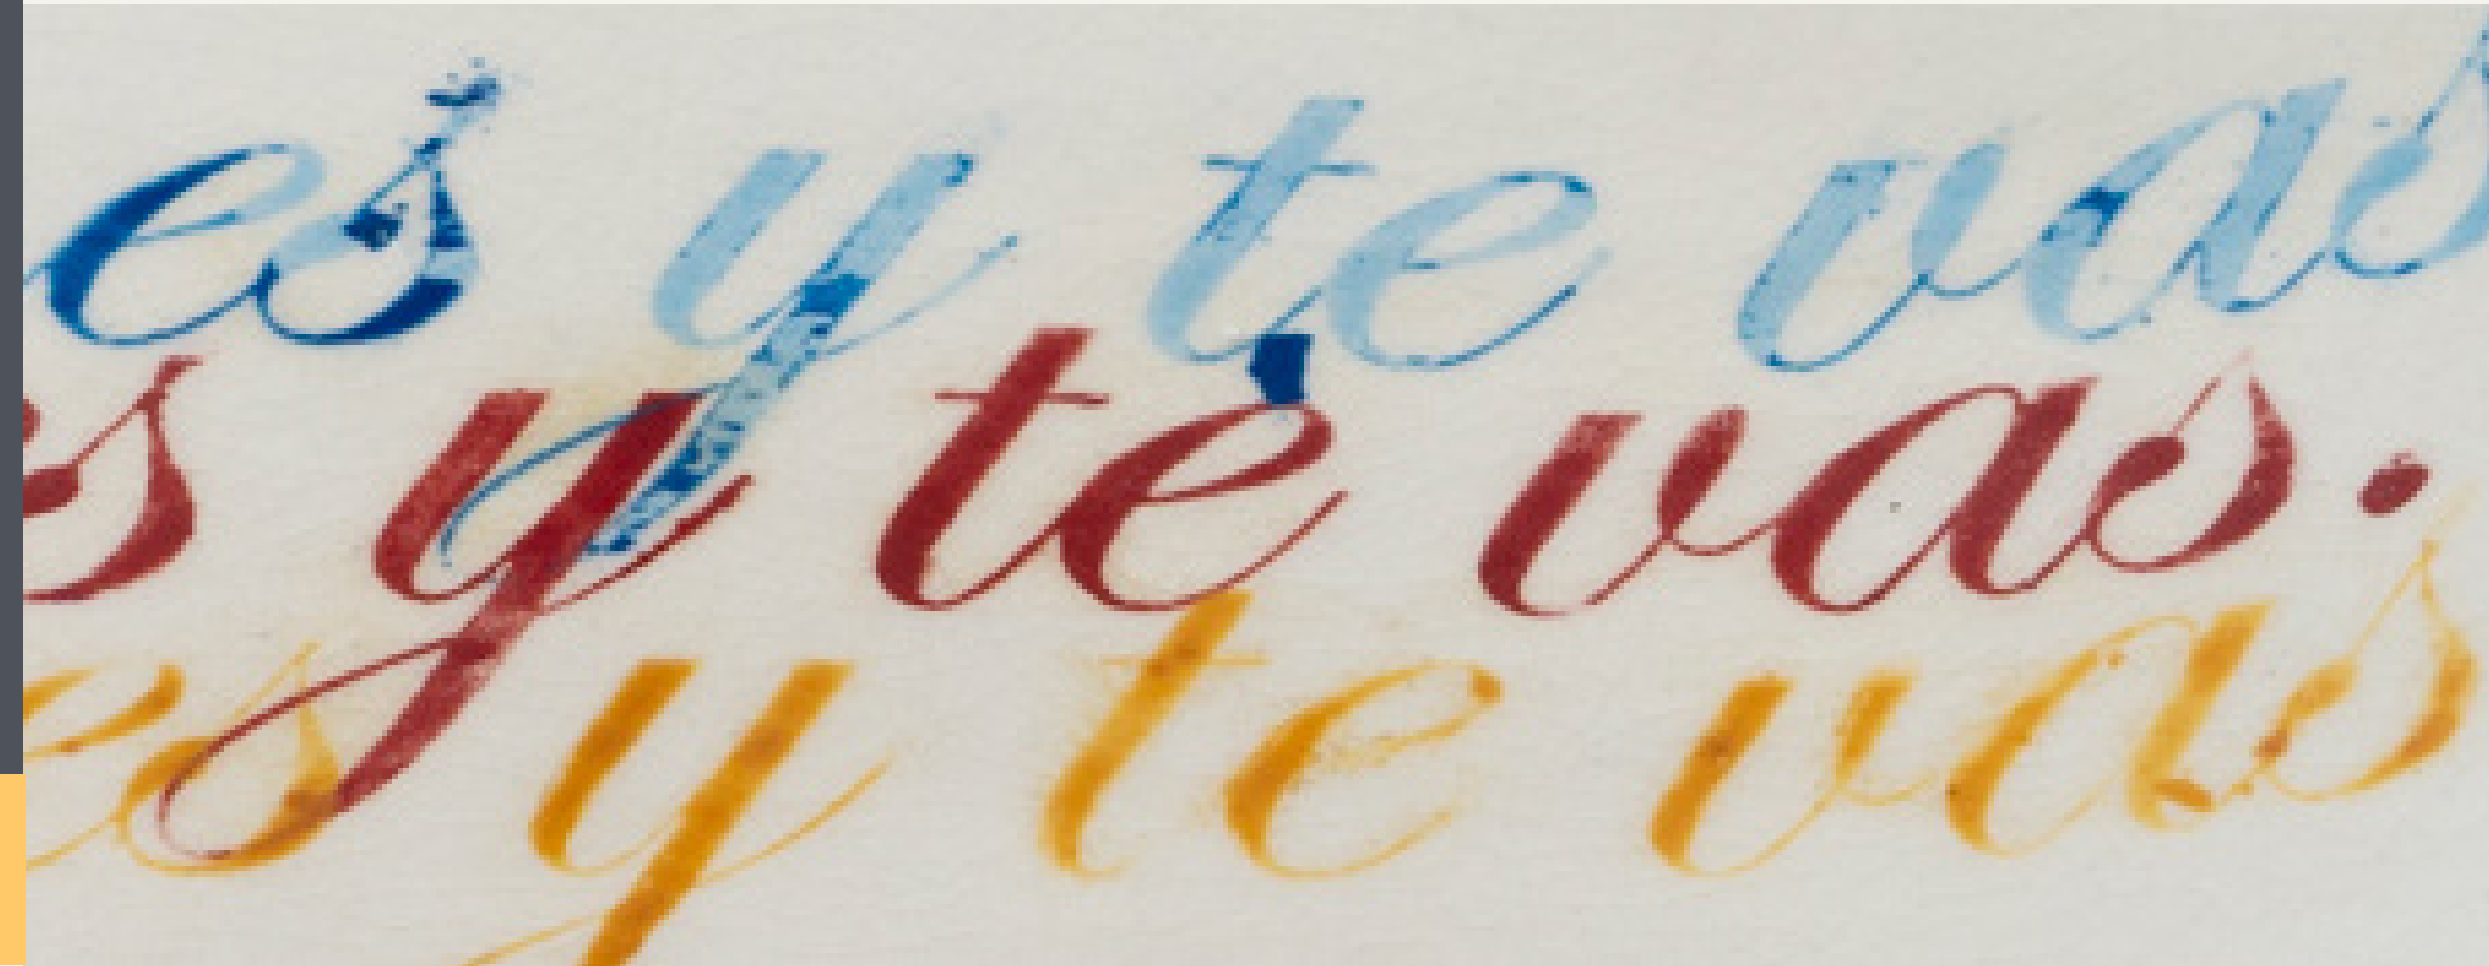 es y te vas
s y te vas.
es y te vas